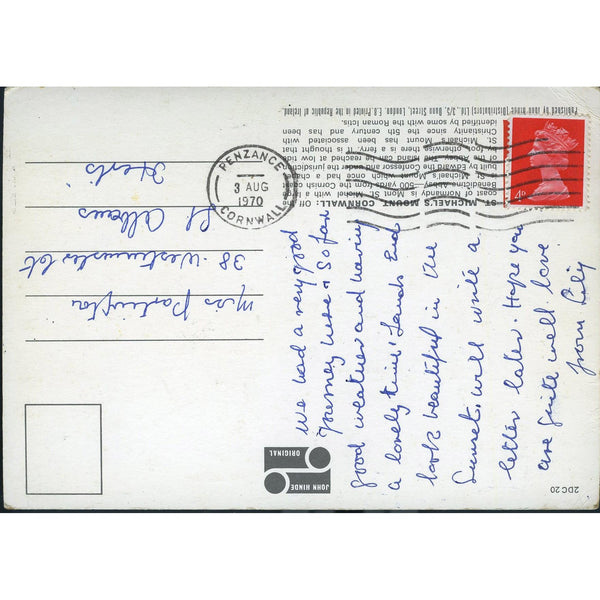 ST. MICHAEL'S MOUNT, CORNWALL: Off the
coast of Normandy is Mont St. Michel with a large
Benedictine Abbey.
St. Michael's Mount
by Edward the Confessor and under the jurisdiction
of the Abbot. The island can be reached at low
St. Michael's Mount has been associated with
Christianity since the 5th century and has been
identified by some with the Roman Ictis.
Published by John Hinde (Distributors) Ltd., 3/5, Dunn Street, London, E.8. Printed in the Republic of Ireland
PENZANCE
3 AUG
1970
CORNWALL
4D
We had a very good
journey here & so far
good weather and having
a lovely time, Lands End
look beautiful in the
Sunset. will write a
letter later. Hope you
are quite well love
from Lily
Miss Partington
38. Westminster Cot
St Albans
Herts
JOHN HINDE
ORIGINAL
2DC 20